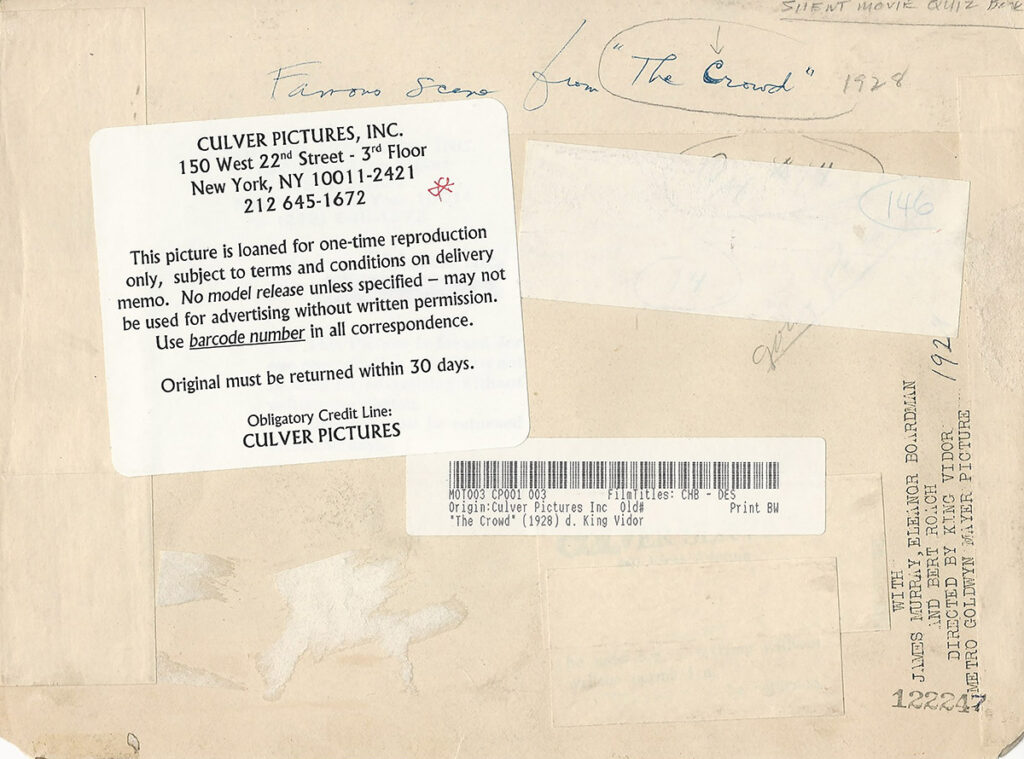 SILENT MOVIE QUIZ BOOK
Famous Scene from "The Crowd" 1928
CULVER PICTURES, INC.
150 West 22nd Street - 3rd Floor
New York, NY 10011-2421
212 645-1672
This picture is loaned for one-time reproduction
only, subject to terms and conditions on delivery
memo. No model release unless specified – may not
be used for advertising without written permission.
Use barcode number in all correspondence.
Original must be returned within 30 days.
Obligatory Credit Line:
CULVER PICTURES
146
MOT003 CP001 003 FilmTitles: CHB - DES
Origin:Culver Pictures Inc Old# Print BW
"The Crowd" (1928) d. King Vidor
WITH
JAMES MURRAY, ELEANOR BOARDMAN
AND BERT ROACH
DIRECTED BY KING VIDOR
METRO GOLDWYN MAYER PICTURE
122247